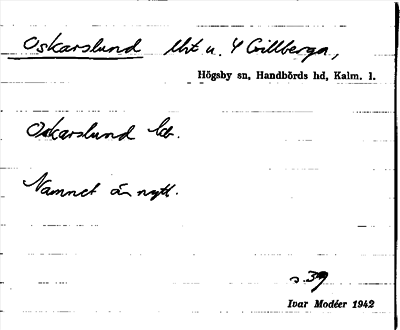 Oskarslund lht u. Y Gillberga,
Högsby sn, Handbörds hd, Kalm. l.
Oskarslund
Namnet är nytt.
s. 39
Ivar Modéer 1942